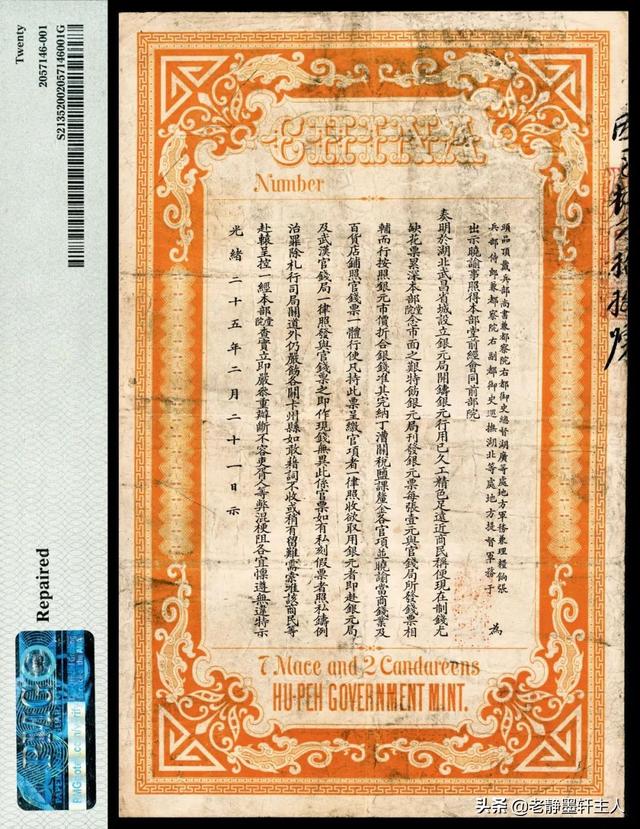 Twenty
2057146-001
S2135200205714600​1G
Repaired
CHINA
Number
頭品頂戴兵部尚書兼都察院右都御史總督湖廣等處地方軍務兼理糧餉張
兵部侍郎兼都察院右副都御史巡撫湖北等處地方提督軍務于
為
出示曉諭事照得本部堂前經會同前部院
奏明於湖北武昌省城設立銀元局開鑄銀元行用已久工精色足遠近商民稱便現在制錢尤
缺花票累深本部堂院念市面之艱特飭銀元局刊發銀元票每張壹元與官錢局所發錢票相
輔而行按照銀元市價折合銀錢准其完納丁漕關稅鹽課釐金各官項並曉諭當商錢業及
百貨店鋪照官錢票一體行使凡持此票呈繳官項者一律照收欲取用銀元者即赴銀元局
及武漢官錢局一律照發與官錢票之即作現錢無異此係官票如有私刻假票者照私鑄例
治罪除札行司局關道外仍嚴飭各關卡州縣如敢藉詞不收或稍有留難需索准該商民等
赴轅呈控一經本部堂院查實立即嚴參重辦斷不容吏胥人等弊混梗阻各宜懍遵無違特示
光緒二十五年二月二十一日示
7 Mace and 2 Candareens
HU-PEH GOVERNMENT MINT.
头条 @老静墨轩主人